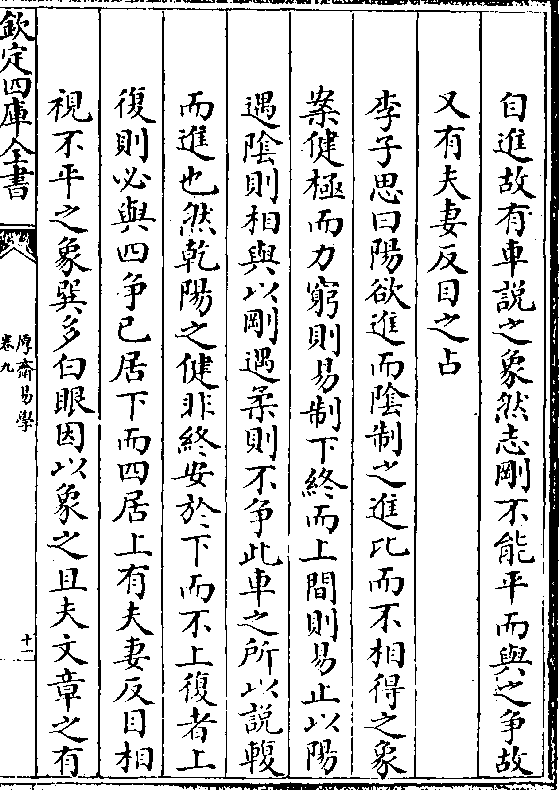 自進故有車説之象然志剛不能平而與之爭故
又有夫妻反目之占
李子思曰陽欲進而陰制之進比而不相得之象
案健極而力窮則易制下終而上間則易止以陽
遇陰則相與以剛遇柔則不爭此車之所以説輹
而進也然乾陽之健非終安於下而不上復者上
復則必與四爭已居下而四居上有夫妻反目相
視不平之象巽多白眼因以象之且夫文章之有
欽定四庫全書
厚齋易學
卷九
十二